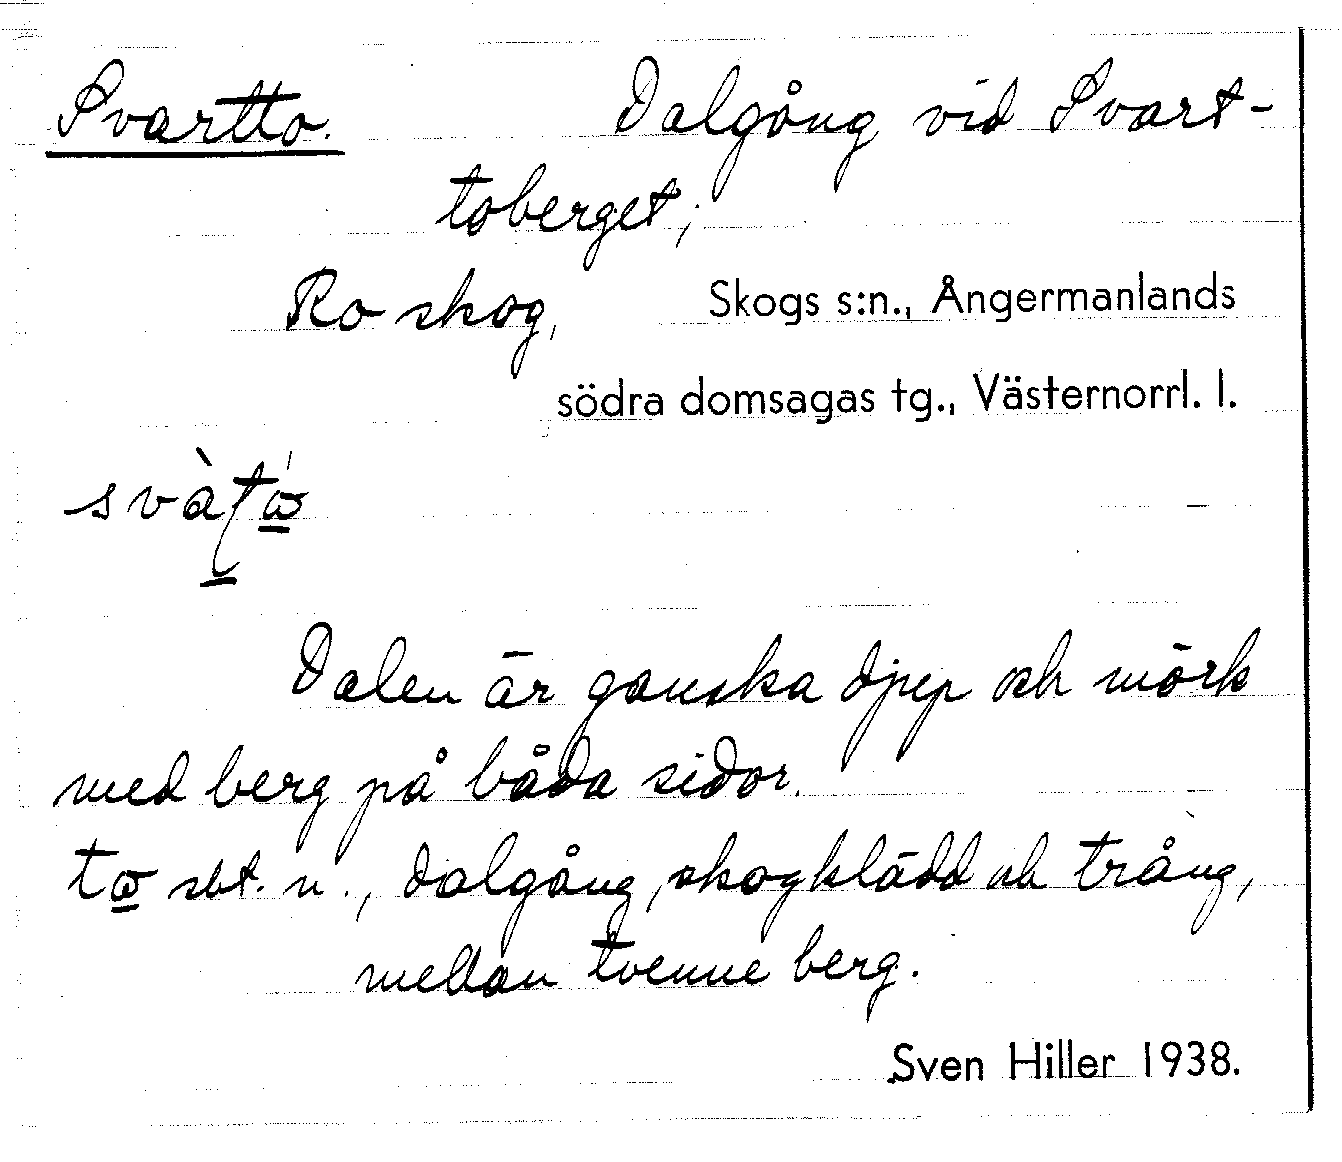 Svartto. Dalgång vid Svart-
toberget,
Ro skog, Skogs s:n., Ångermanlands
södra domsagas tg., Västernorrl. l.
Dalen är ganska djup och mörk
med berg på båda sidor.
to sbt. n., dalgång, skogklädd och trång,
mellan tvenne berg.
Sven Hiller 1938.